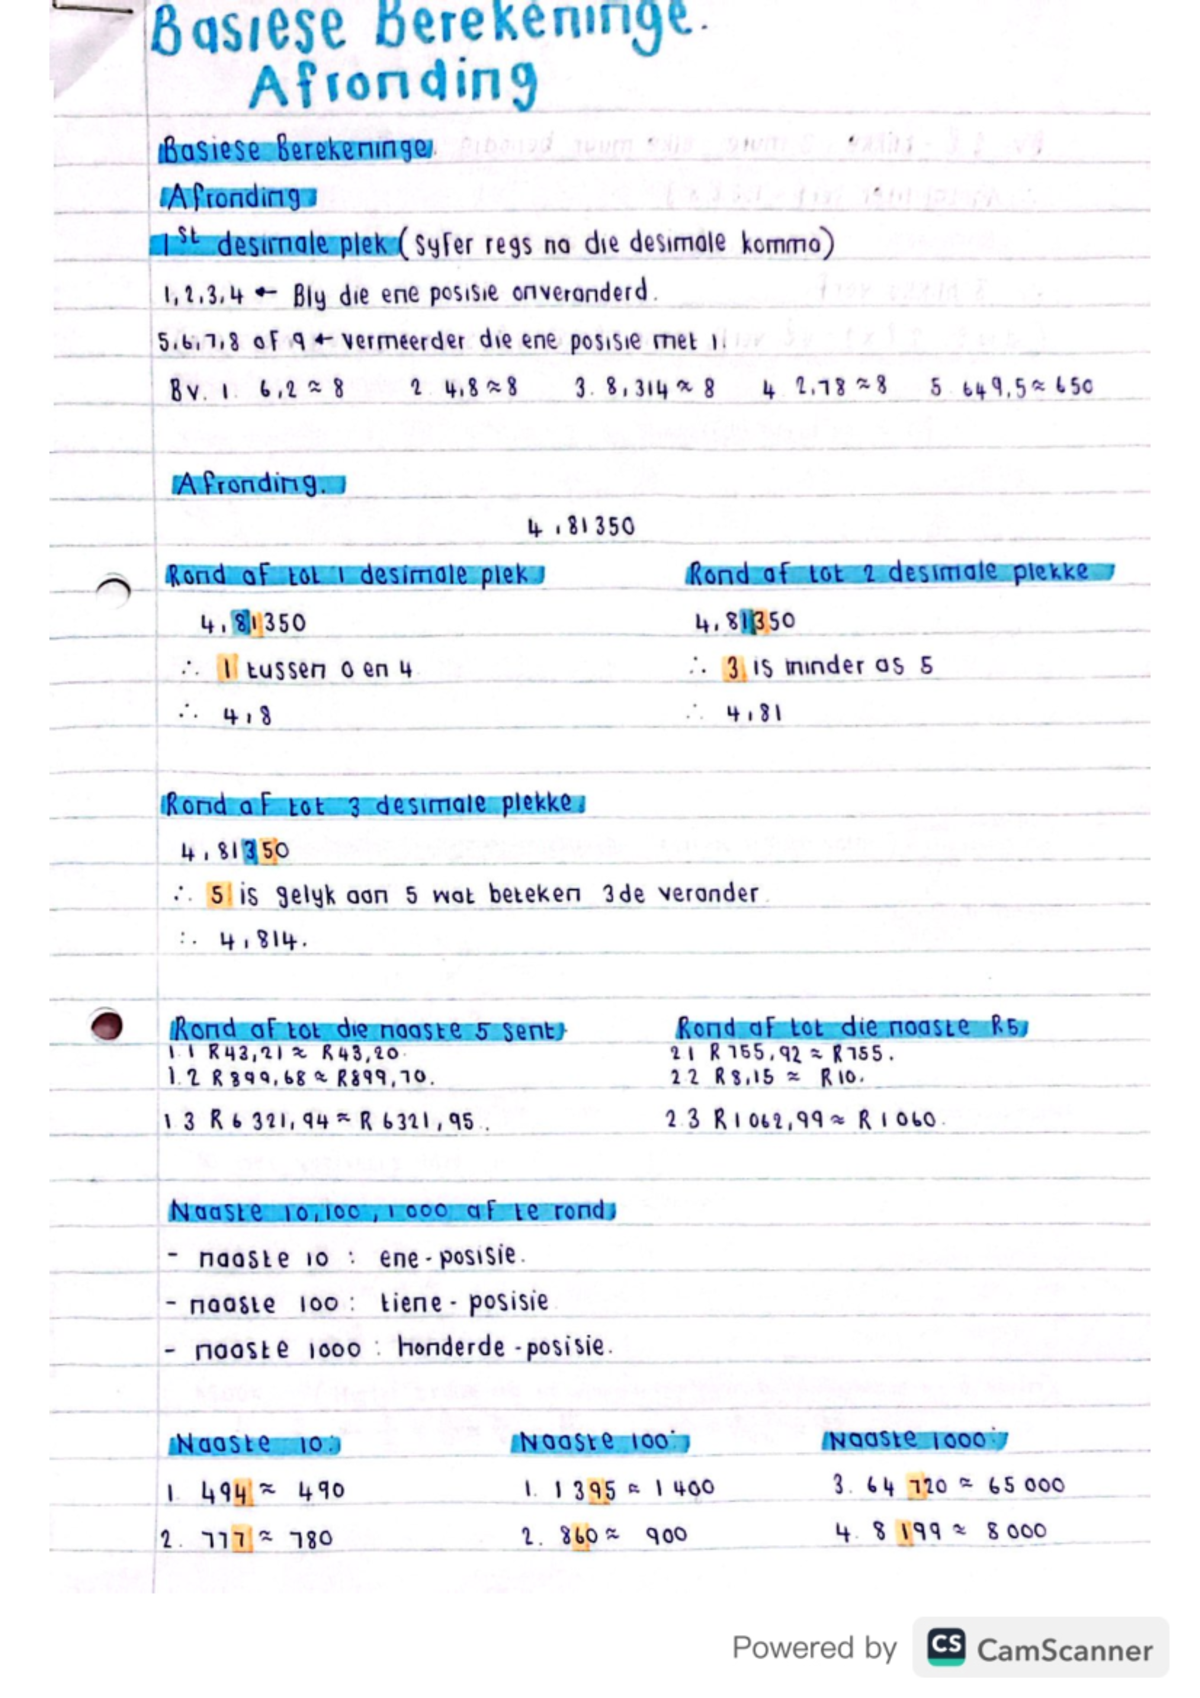 Basiese Berekeninge.
Afronding
Basiese Berekeninge.
Afronding
1st desimale plek (syfer regs na die desimale komma)
1,2,3,4 ← Bly die ene posisie onveranderd.
5,6,7,8 of 9 ← vermeerder die ene posisie met 1.
Bv. 1. 6,2 ≈ 8 2. 4,8 ≈ 8 3. 8,314 ≈ 8 4. 2,78 ≈ 8 5. 649,5 ≈ 650
Afronding.
4,81350
Rond af tot 1 desimale plek Rond af tot 2 desimale plekke
4,81350 4,81350
∴ 1 tussen 0 en 4 ∴ 3 is minder as 5
∴ 4,8 ∴ 4,81
Rond af tot 3 desimale plekke
4,81350
∴ 5 is gelyk aan 5 wat beteken 3de verander.
∴ 4,814.
Rond af tot die naaste 5 sent Rond af tot die naaste R5
1.1 R43,21 ≈ R43,20. 2.1 R755,92 ≈ R755.
1.2 R899,68 ≈ R899,70. 2.2 R8,15 ≈ R10.
1.3 R6 321,94 ≈ R6321,95. 2.3 R1 062,99 ≈ R1 060.
Naaste 10,100,1000 af te rond
- naaste 10 : ene-posisie.
- naaste 100 : tiene-posisie
- naaste 1000 : honderde-posisie.
Naaste 10: Naaste 100: Naaste 1000:
1. 494 ≈ 490 1. 1 395 ≈ 1 400 3. 64 720 ≈ 65 000
2. 777 ≈ 780 2. 860 ≈ 900 4. 8 199 ≈ 8 000
Powered by CS CamScanner